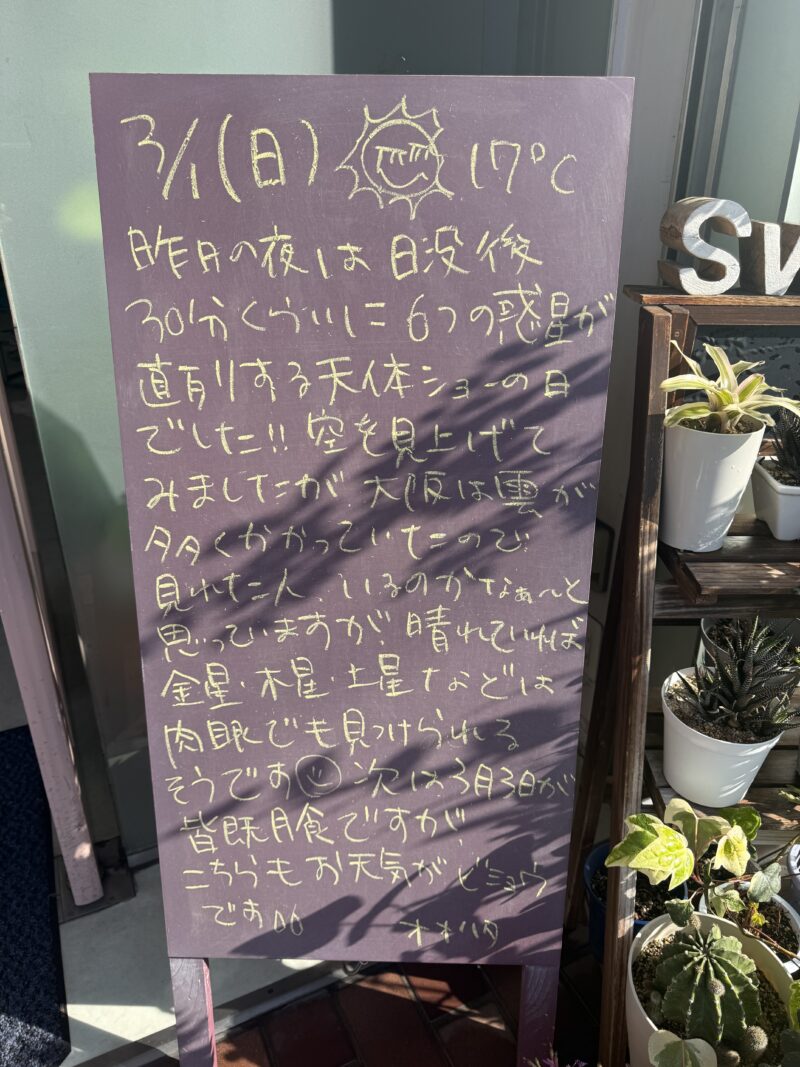 3/1(日) 17℃
昨日の夜は日没後
30分くらいに6つの惑星が
直列する天体ショーの日
でした!! 空を見上げて
みましたが、大阪は雲が
多くかかっていたので
見れた人、いるのかなぁ〜と
思っていますが、晴れていれば
金星・木星・土星などは
肉眼でも見つけられる
そうです 次は3月3日が
皆既月食ですが、
こちらもお天気がビミョウ
です
オオハタ
Sw